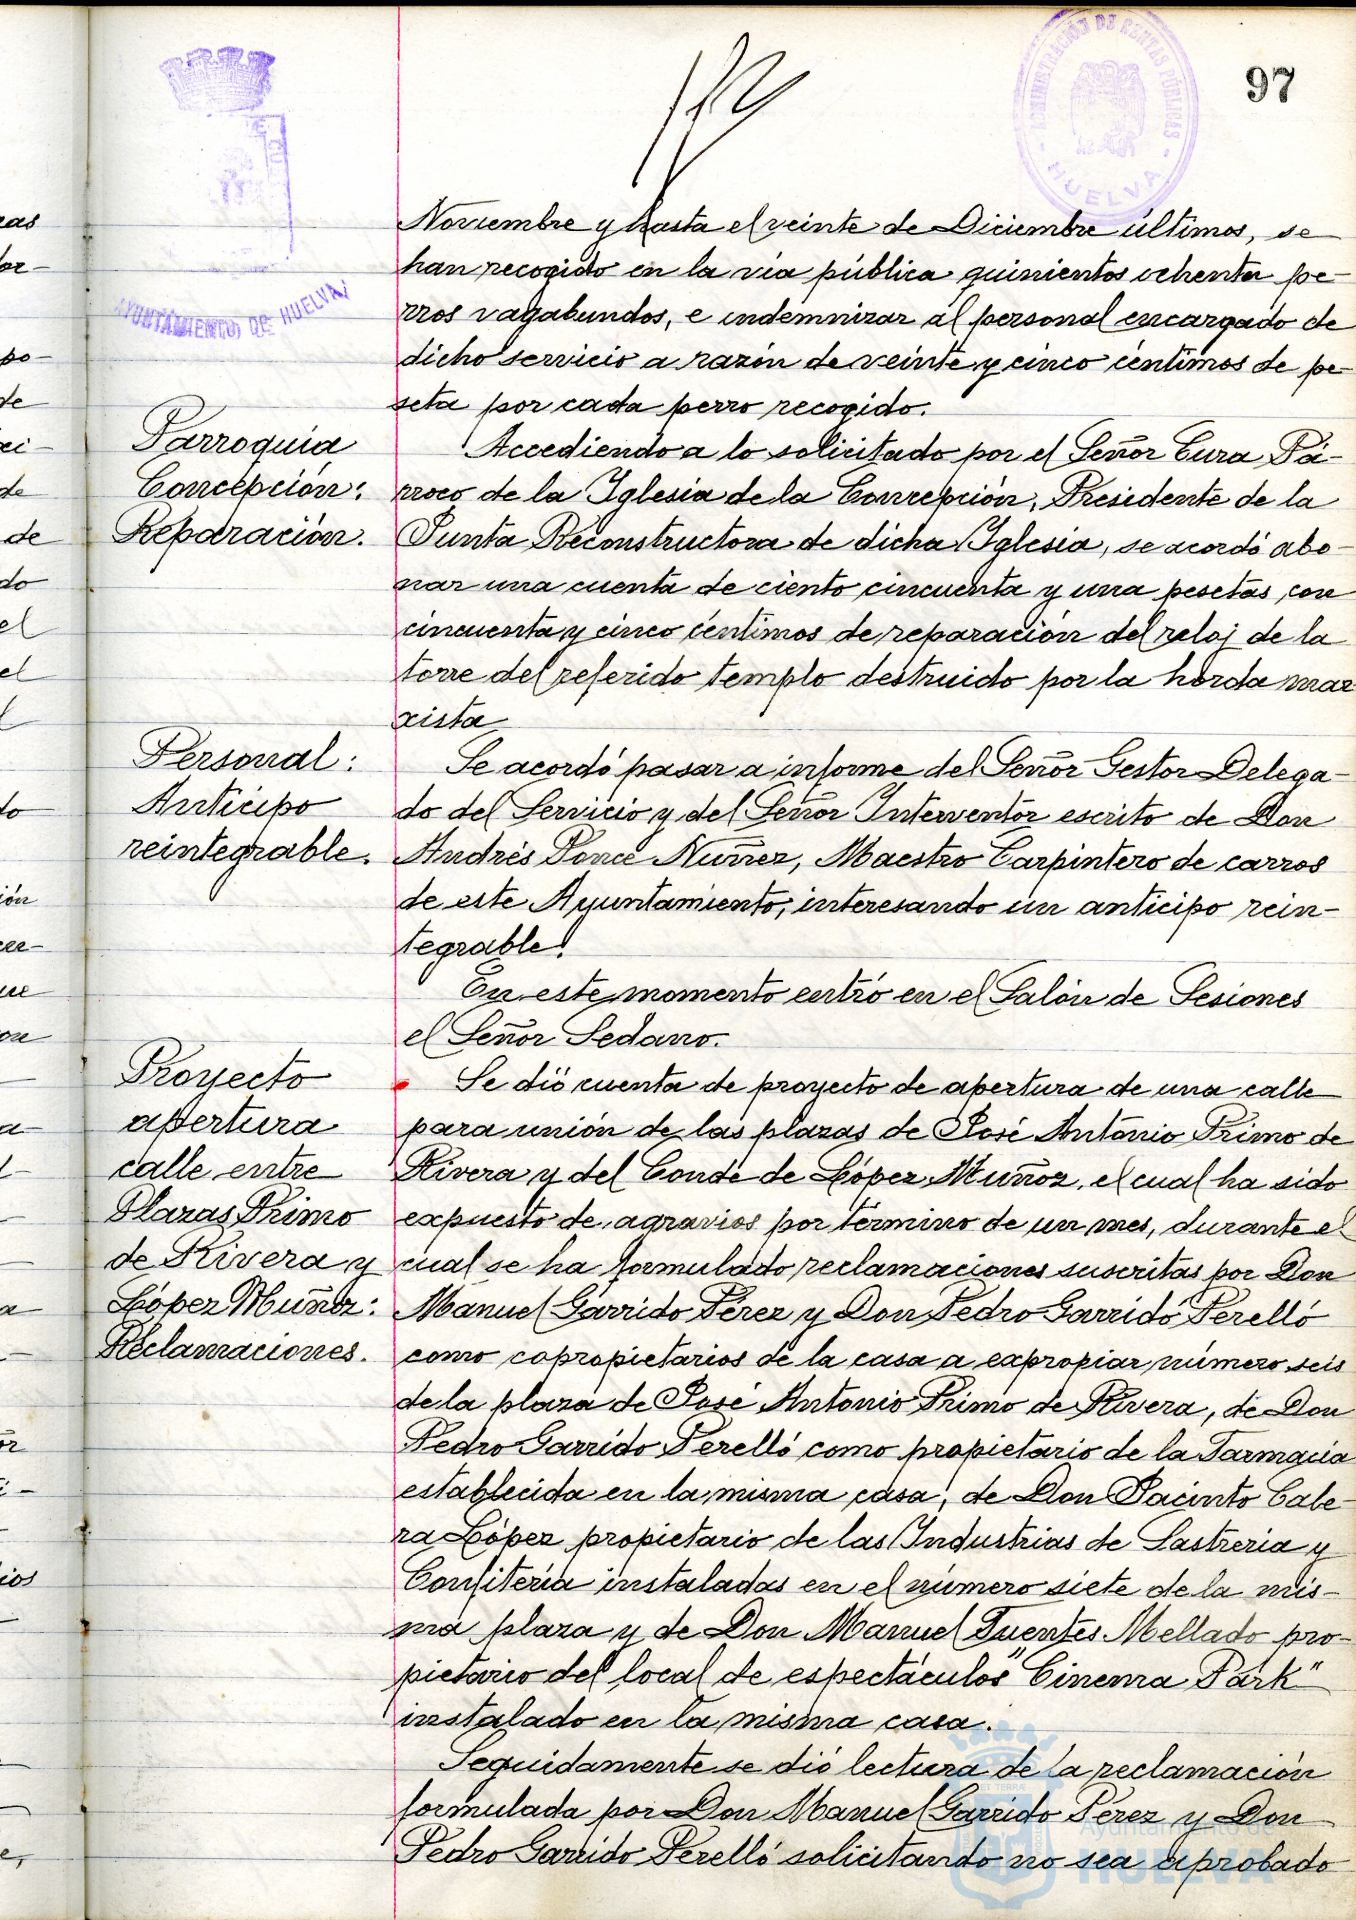 97
ADMINISTRACIÓN DE RENTAS PÚBLICAS
HUELVA
AYUNTAMIENTO DE HUELVA
Noviembre y hasta el veinte de Diciembre últimos, se
han recogido en la vía pública quinientos ochenta pe-
rros vagabundos, e indemnizar al personal encargado de
dicho servicio a razón de veinte y cinco céntimos de pe-
seta por cada perro recogido.
Parroquia
Concepción:
Reparación.
Accediendo a lo solicitado por el Señor Cura Pá-
rroco de la Iglesia de la Concepción, Presidente de la
Junta Reconstructora de dicha Iglesia, se acordó abo-
nar una cuenta de ciento cincuenta y una pesetas con
cincuenta y cinco céntimos de reparación del reloj de la
torre del referido templo destruido por la horda mar
xista
Personal:
Anticipo
reintegrable.
Se acordó pasar a informe del Señor Gestor Delega-
do del Servicio y del Señor Interventor escrito de Don
Andrés Ponce Núñez, Maestro Carpintero de carros
de este Ayuntamiento, interesando un anticipo rein-
tegrable.
En este momento entró en el Salón de Sesiones
el Señor Sedano.
Proyecto
apertura
calle entre
Plazas Primo
de Rivera y
López Muñoz:
Reclamaciones.
Se dió cuenta de proyecto de apertura de una calle
para unión de las plazas de José Antonio Primo de
Rivera y del Conde de López Muñoz, el cual ha sido
expuesto de agravios por término de un mes, durante el
cual se ha formulado reclamaciones suscritas por Don
Manuel Garrido Pérez y Don Pedro Garrido Perelló
como copropietarios de la casa a expropiar número seis
de la plaza de José Antonio Primo de Rivera, de Don
Pedro Garrido Perelló como propietario de la Farmacia
establecida en la misma casa, de Don Jacinto Cabe-
ra López propietario de las Industrias de Sastrería y
Confitería instaladas en el número siete de la mis-
ma plaza y de Don Manuel Fuentes Mellado pro-
pietario del local de espectáculos "Cinema Park"
instalado en la misma casa.
Seguidamente se dió lectura de la reclamación
formulada por Don Manuel Garrido Pérez y Don
Pedro Garrido Perelló solicitando no sea aprobado
Ayuntamiento de
HUELVA